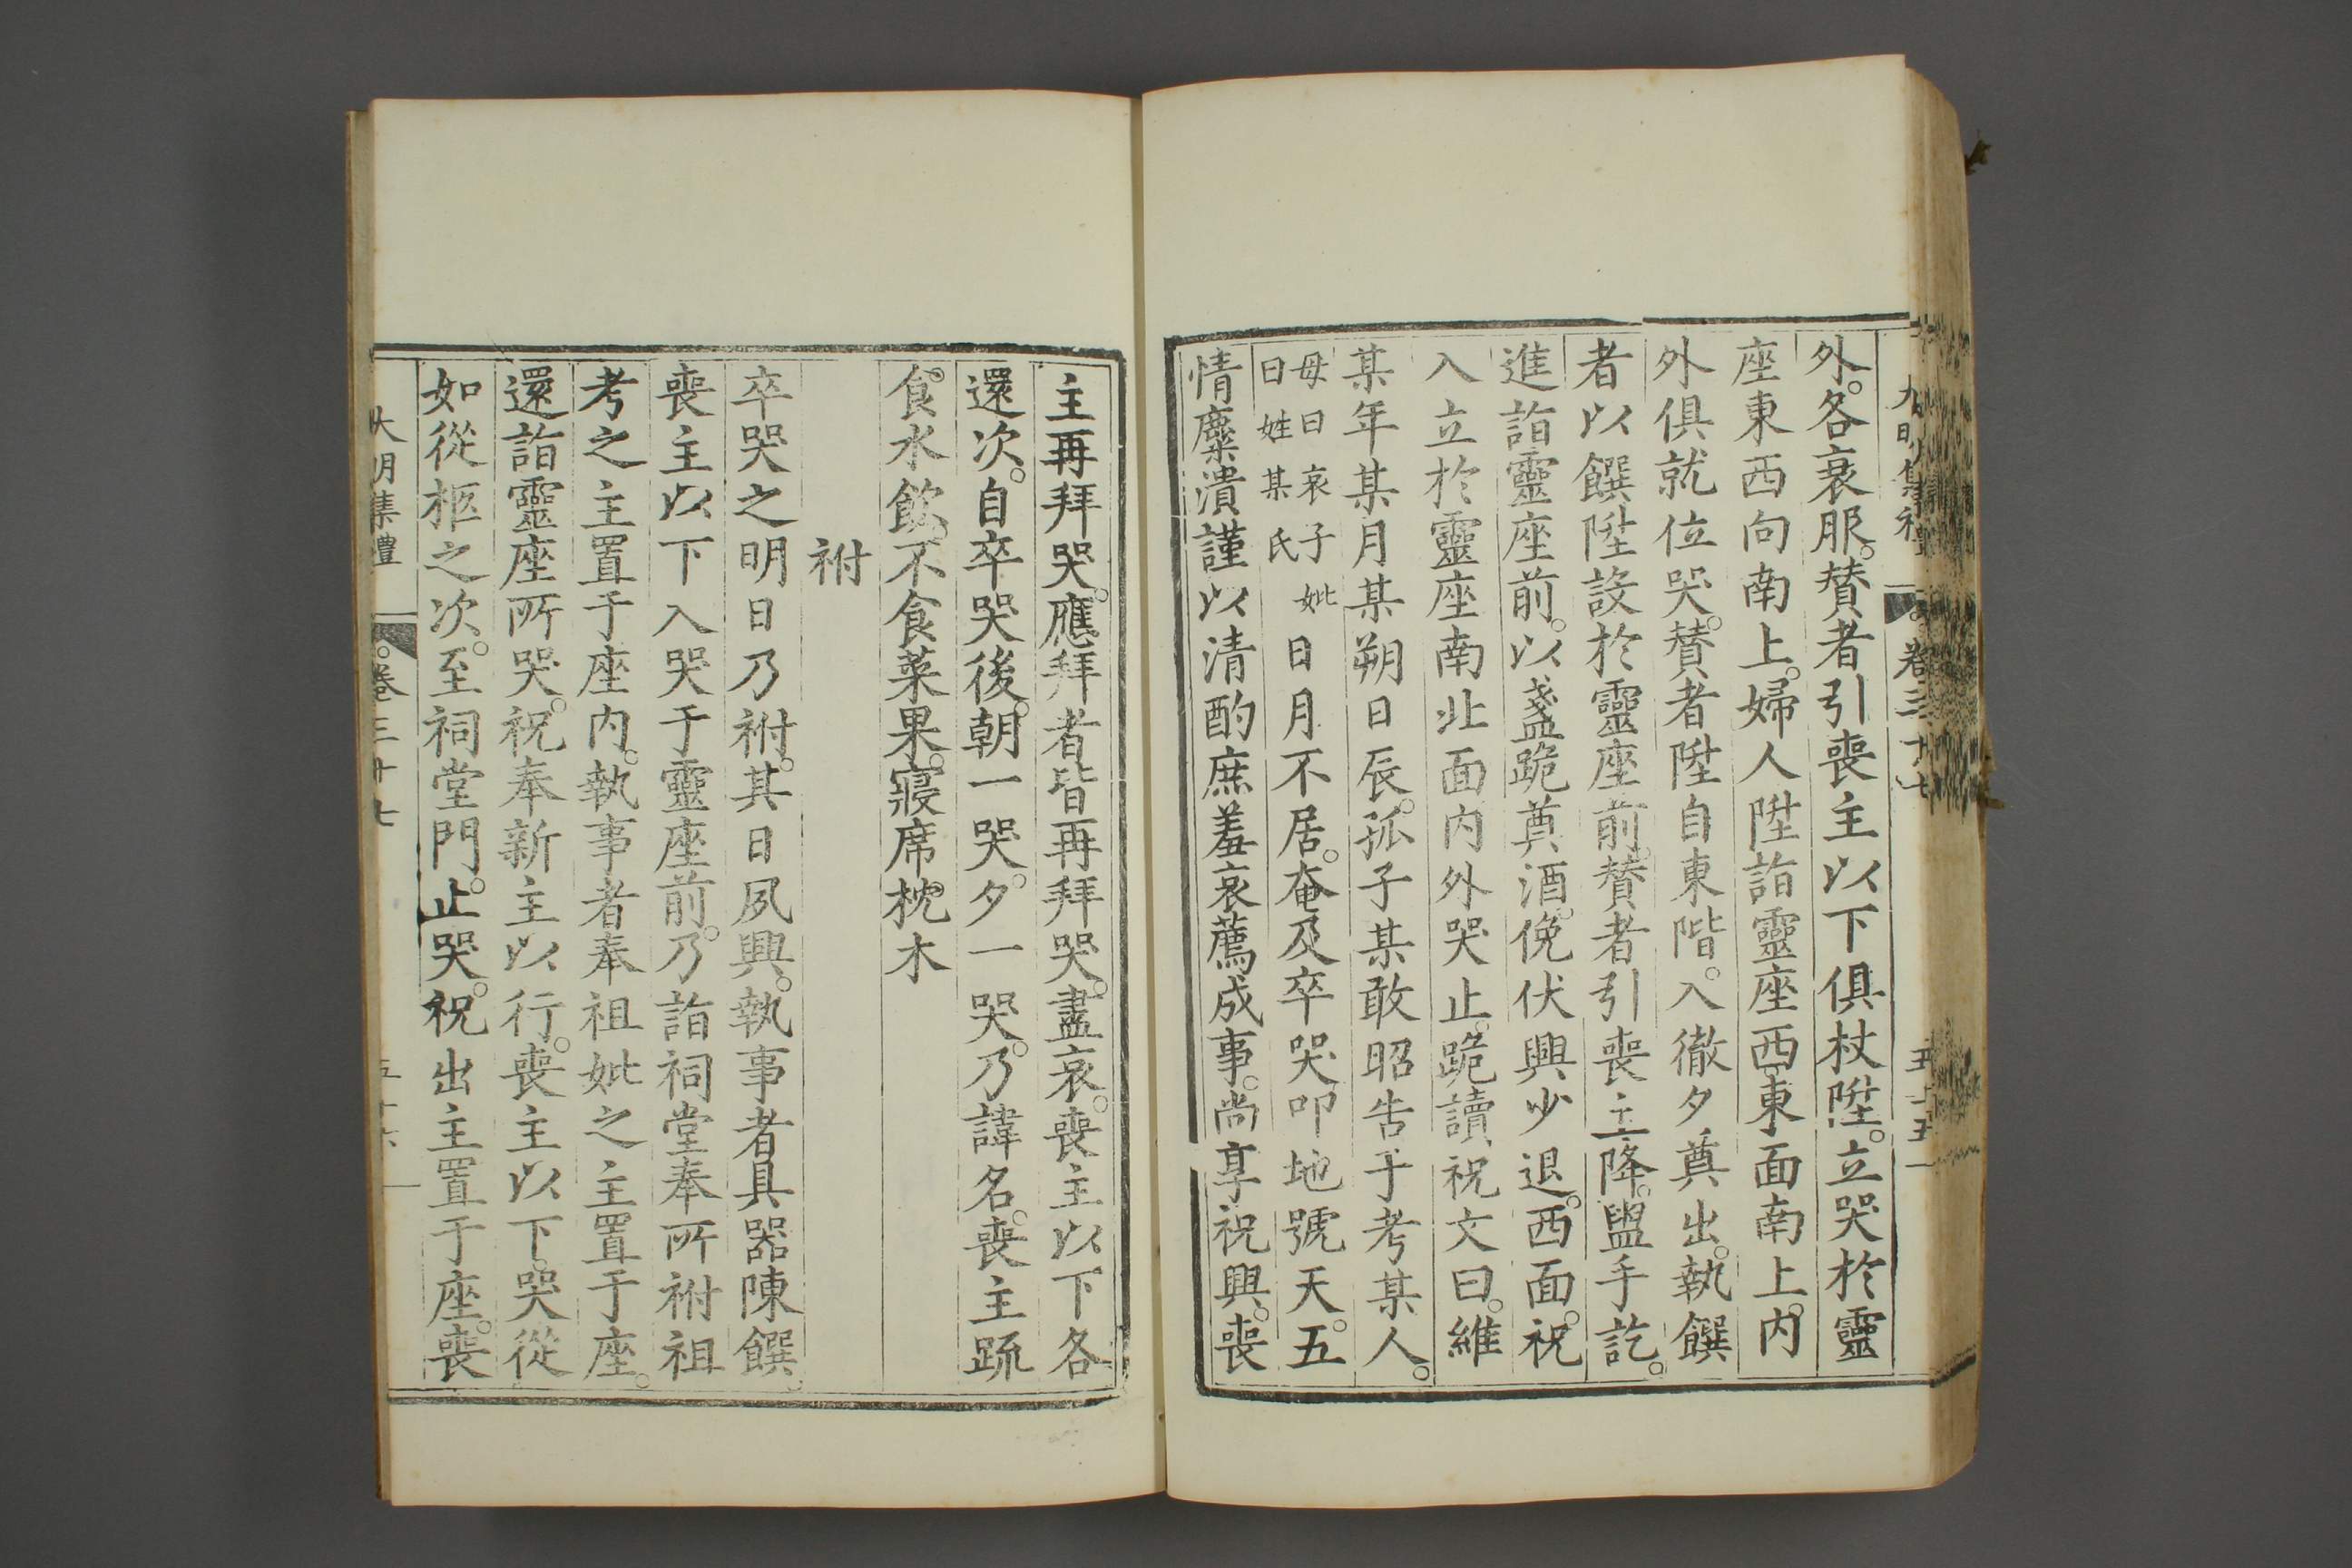 大明集禮 卷三十七 五十五
外。各衰服。賛者引喪主以下俱杖陞。立哭於靈
座東西向南上。婦人陞詣靈座西。東面南上。内
外俱就位哭。賛者陞自東階。入徹夕奠出。執饌
者以饌陞設於靈座前。賛者引喪主降。盥手訖。
進詣靈座前。以盞跪奠酒。俛伏興少退。西面。祝
入立於靈座南北面内外哭止。跪讀祝文曰。維
某年某月某朔日辰。孤子某敢昭告于考某人。
母曰哀子妣曰姓某氏日月不居。奄及卒哭叩地號天。五
情糜潰謹以清酌庶羞哀薦成事。尚享祝興。喪
主再拜哭。應拜者皆再拜哭。盡哀。喪主以下各
還次。自卒哭後。朝一哭。夕一哭。乃諱名。喪主疏
食。水飲。不食菜果。寢席。枕木
祔
卒哭之明日乃祔。其日夙興。執事者具器陳饌。
喪主以下入哭于靈座前。乃詣祠堂奉所祔祖
考之主置于座内。執事者奉祖妣之主置于座。
還詣靈座所哭。祝奉新主以行。喪主以下。哭從
如從柩之次。至祠堂門。止哭。祝出主置于座。喪
大明集禮 卷三十七 五十六